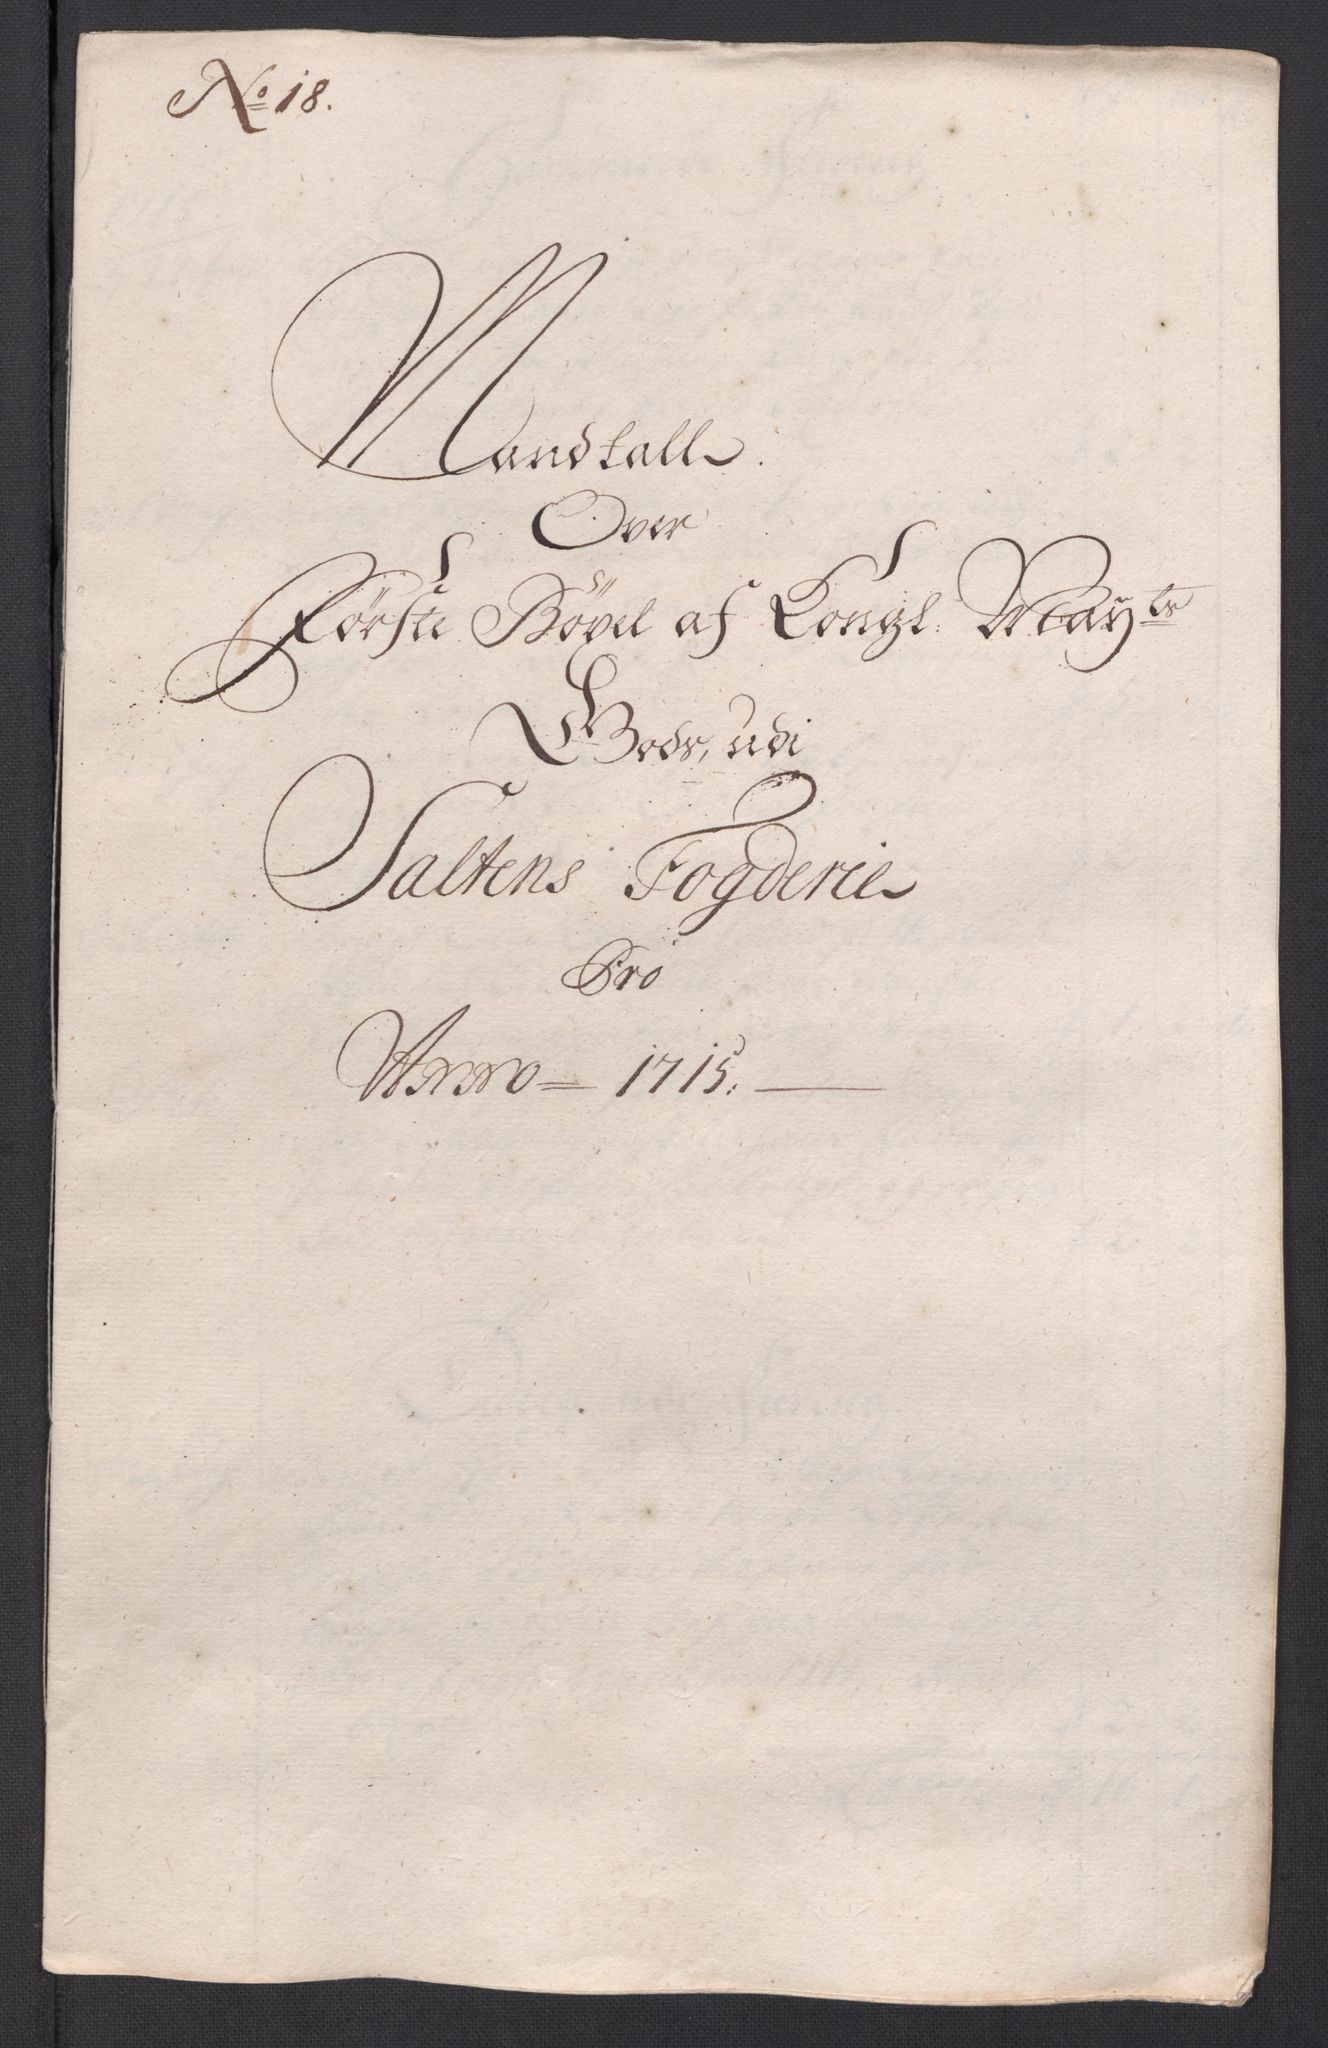 No 18.
Mandtall
Over
Første Bøxel af Kongl. Mayts
Gods, udi
Saltens Fogderie
Pro
Anno 1715.